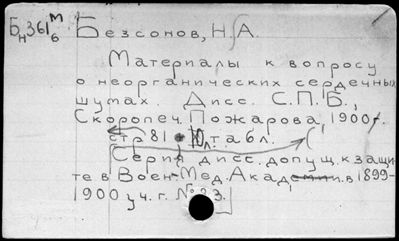 Бн361м/6 Безсонов, Н. А.
Материалы к вопросу
о неорганических сердечных
шумах. Дисс. С.П.Б.,
Скоропеч. Пожарова, 1900 г.
стр 81 10 л. табл.
(Серия дисс. допущ. к защи-
те в Воен.-Мед. Академии. в 1899-
1900 уч. г. № 83.